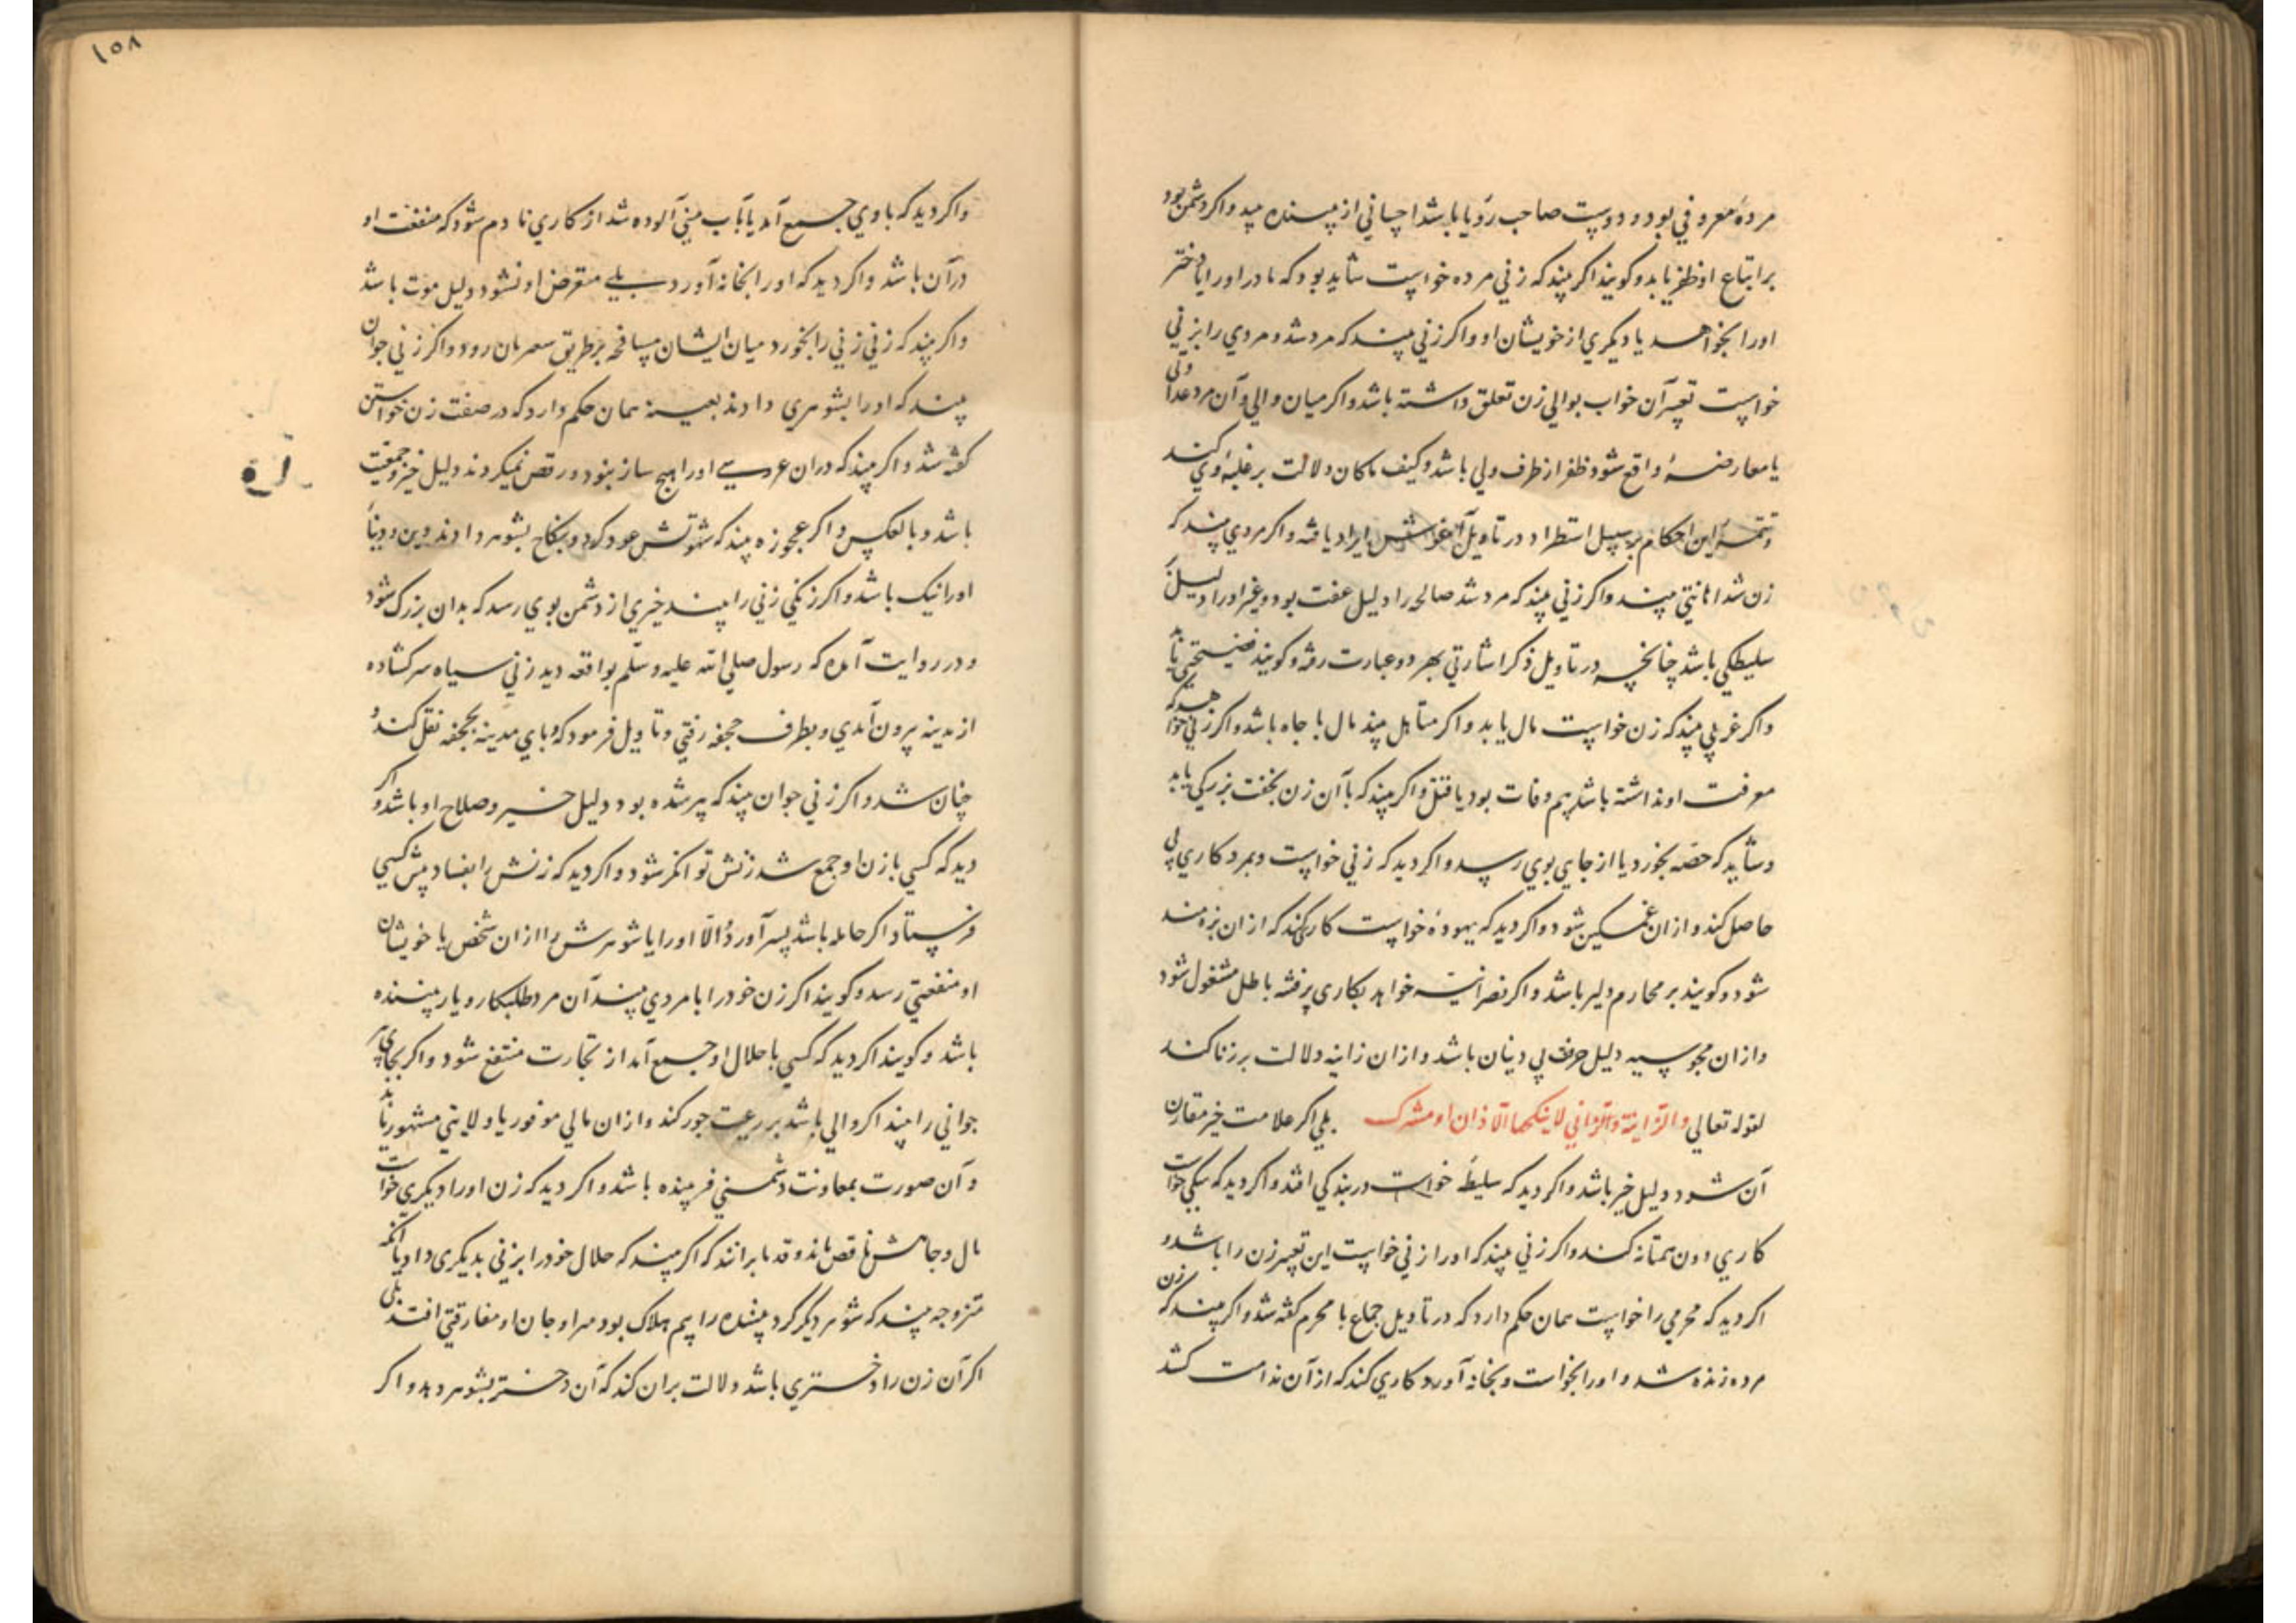 مردهٔ معروفی بود و دوست صاحب رؤیا باشد احسانی از بیننده بیند واکر دشمن بود
بر اتباع او ظفر یابد و کویند اکر بیند که زنی مرده خواست شاید بود که مادر او را یا دختر
او را بخواهد یا دیکری از خویشان او واکر زنی بیند که مرد شد و مردی را بزنی
خواست تعبیر آن خواب بوالی زن تعلق داشته باشد واکر میان والی و آن مرد عداوتی
یا معارضهٔ واقع شود ظفر از طرف ولی باشد وکیف ماکان دلالت بر غلبهٔ وی کند
وتتمهٔ این احکام بر سبیل استطراد در تاویل ایراد یافته واکر مردی بیند که
زن شد بیند واکر زنی بیند که مرد شد صالحه را دلیل عفت بود وغیر او را دلیل
سلیطکی باشد چنانچه در تاویل ذکر اشارتی بهر دو عبارت رفته وکویند فضیحتی یابد
واکر غریبی بیند که زن خواست مال یابد واکر متاهل بیند مال با جاه باشد واکر زنی خواهد که
معرفت او نداشته باشد بیم وفات بود یا قتل واکر بیند که با آن زن بخفت بزرکی یابد
وشاید که حصه بخورد یا از جایی بوی رسد واکر دید که زنی خواست وبمرد کاری بی
حاصل کند و از ان غمکین شود واکر دید که یهودهٔ خواست کاری کند که از ان بزه‌مند
شود وکویند بر محارم دلیر باشد واکر نصرانیه خواهد بکاری باطل مشغول شود
واز ان مجوسیه دلیل حرف بی دینان باشد واز ان زانیه دلالت بر زنا کند
لقوله تعالی والزانیة والزانی لا ینکحها الا زان او مشرک بلی اکر علامت خیر مقارن
آن شود دلیل خیر باشد واکر دید که سلیطهٔ خواست در بندکی افتد واکر دید که سکی خواست
کاری دون همتانه کند واکر زنی بیند که او را زنی خواست این تعبیر زن را باشد و
اکر دید که محرمی را خواست همان حکم دارد که در تاویل جماع با محرم کفته شد واکر بیند که زن
مرده زنده شد و او را بخواست وبخانه آورد کاری کند که از آن ندامت کشد
۱۵۸
واکر دید که با وی جمع آمد یا بآب منی آلوده شد از کاری نادم شود که منفعت او
در آن باشد واکر دید که او را بخانه آورد بلی متعرض او نشود دلیل موت باشد
واکر بیند که زنی زنی را بخورد میان ایشان مساحقه بر طریق رود واکر زنی جوان
بیند که او را بشوهری دادند بعینه همان حکم دارد که در صفت زن خواستن
کفته شد واکر بیند که دران عروسی او را هیچ ساز نبود ورقص نمیکردند دلیل خیر وجمعیت
باشد وبالعکس واکر عجوزه بیند که شهوتش عود کرد وبنکاح بشوهر دادند دین ودنیا
او را نیک باشد واکر زنکی زنی را بیند خیری از دشمن بوی رسد که بدان بزرک شود
ودر روایت آمده که رسول صلی الله علیه وسلم بواقعه دید زنی سیاه سر کشاده
از مدینه بیرون آمدی وبطرف جحفه رفتی وتاویل فرمود که وبای مدینه بجحفه نقل کند و
چنان شد واکر زنی جوان بیند که پیر شده بود دلیل خیر وصلاح او باشد واکر
دید که کسی با زن او جمع شد زنش توانکر شود واکر دید که زنش را بفساد پیش کسی
فرستاد اکر حامله باشد پسر آورد والا او را یا شوهرش را از ان شخص یا خویشان
او منفعتی رسد وکویند اکر زن خود را با مردی بیند آن مرد طلبکار و یار بیننده
باشد وکویند اکر دید که کسی با حلال او جمع آمد از تجارت منتفع شود واکر بجای پیر
جوانی را بیند اکر والی باشد بر رعیت جور کند واز ان مالی موفور یا ولایتی مشهور یابد
وآن صورت بمعاونت دشمنی باشد واکر دید که زن او را دیکری خواست
مال وجاهش ناقص ماند وقدما برانند که اکر بیند که حلال خود را بزنی بدیکری داد یا آنکه
متزوجه بیند که شوهر دیکر کرد بیننده را بیم هلاک بود میان او مفارقتی افتد بلی
اکر آن زن را دختری باشد دلالت بران کند که آن دختر بشوهر دهد واکر